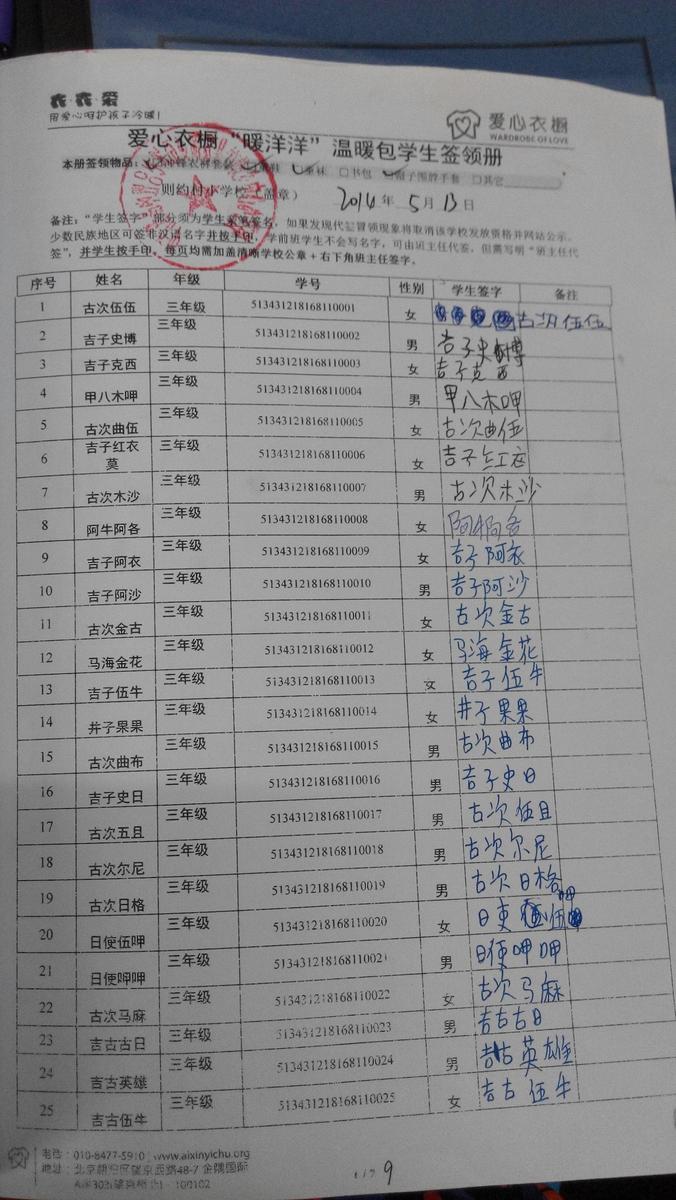 衣·衣·爱
用爱心呵护孩子冷暖!
爱心衣橱
WARDROBE OF LOVE
爱心衣橱“暖洋洋”温暖包学生签领册
本册签领物品: 书包 帽子围脖手套 其它
则约村小学校 盖章) 2014年5月13日
备注:“学生签字”部分须为学生亲笔签名,如果发现代签冒领现象将取消该学校发放资格并网站公示。
少数民族地区可签非汉语名字并按手印,学前班学生不会写名字,可由班主任代签,但需写明“班主任代
签”,并学生按手印,每页均需加盖清晰学校公章+右下角班主任签字。
序号 姓名 年级 学号 性别 学生签字 备注
1 古次伍伍 三年级 513431218168110001 女 古次伍伍
2 吉子史博 三年级 513431218168110002 男 吉子史博
3 吉子克西 三年级 513431218168110003 女 吉子克西
4 甲八木呷 三年级 513431218168110004 男 甲八木呷
5 古次曲伍 三年级 513431218168110005 女 古次曲伍
6 吉子红衣莫 三年级 513431218168110006 女 吉子红衣
7 古次木沙 三年级 513431218168110007 男 古次木沙
8 阿牛阿各 三年级 513431218168110008 女
9 吉子阿衣 三年级 513431218168110009 女 吉子阿衣
10 吉子阿沙 三年级 513431218168110010 男 吉子阿沙
11 古次金古 三年级 513431218168110011 女 古次金古
12 马海金花 三年级 513431218168110012 女 马海金花
13 吉子伍牛 三年级 513431218168110013 女 吉子伍牛
14 井子果果 三年级 513431218168110014 女 井子果果
15 古次曲布 三年级 513431218168110015 男 古次曲布
16 吉子史日 三年级 513431218168110016 男 吉子史日
17 古次五且 三年级 513431218168110017 男 古次伍且
18 古次尔尼 三年级 513431218168110018 男 古次尔尼
19 古次日格 三年级 513431218168110019 男 古次日格
20 日使伍呷 三年级 513431218168110020 女 日史伍
21 日使呷呷 三年级 513431218168110021 男 日使呷呷
22 古次马麻 三年级 513431218168110022 女 古次马麻
23 吉古古日 三年级 513431218168110023 男 吉古古日
24 吉古英雄 三年级 513431218168110024 男 吉古英雄
25 吉古伍牛 三年级 513431218168110025 女 吉古伍牛
电话:010-8477-5910 www.aixinyichu.org
地址:北京朝阳区望京西路48-7 金隅国际
9